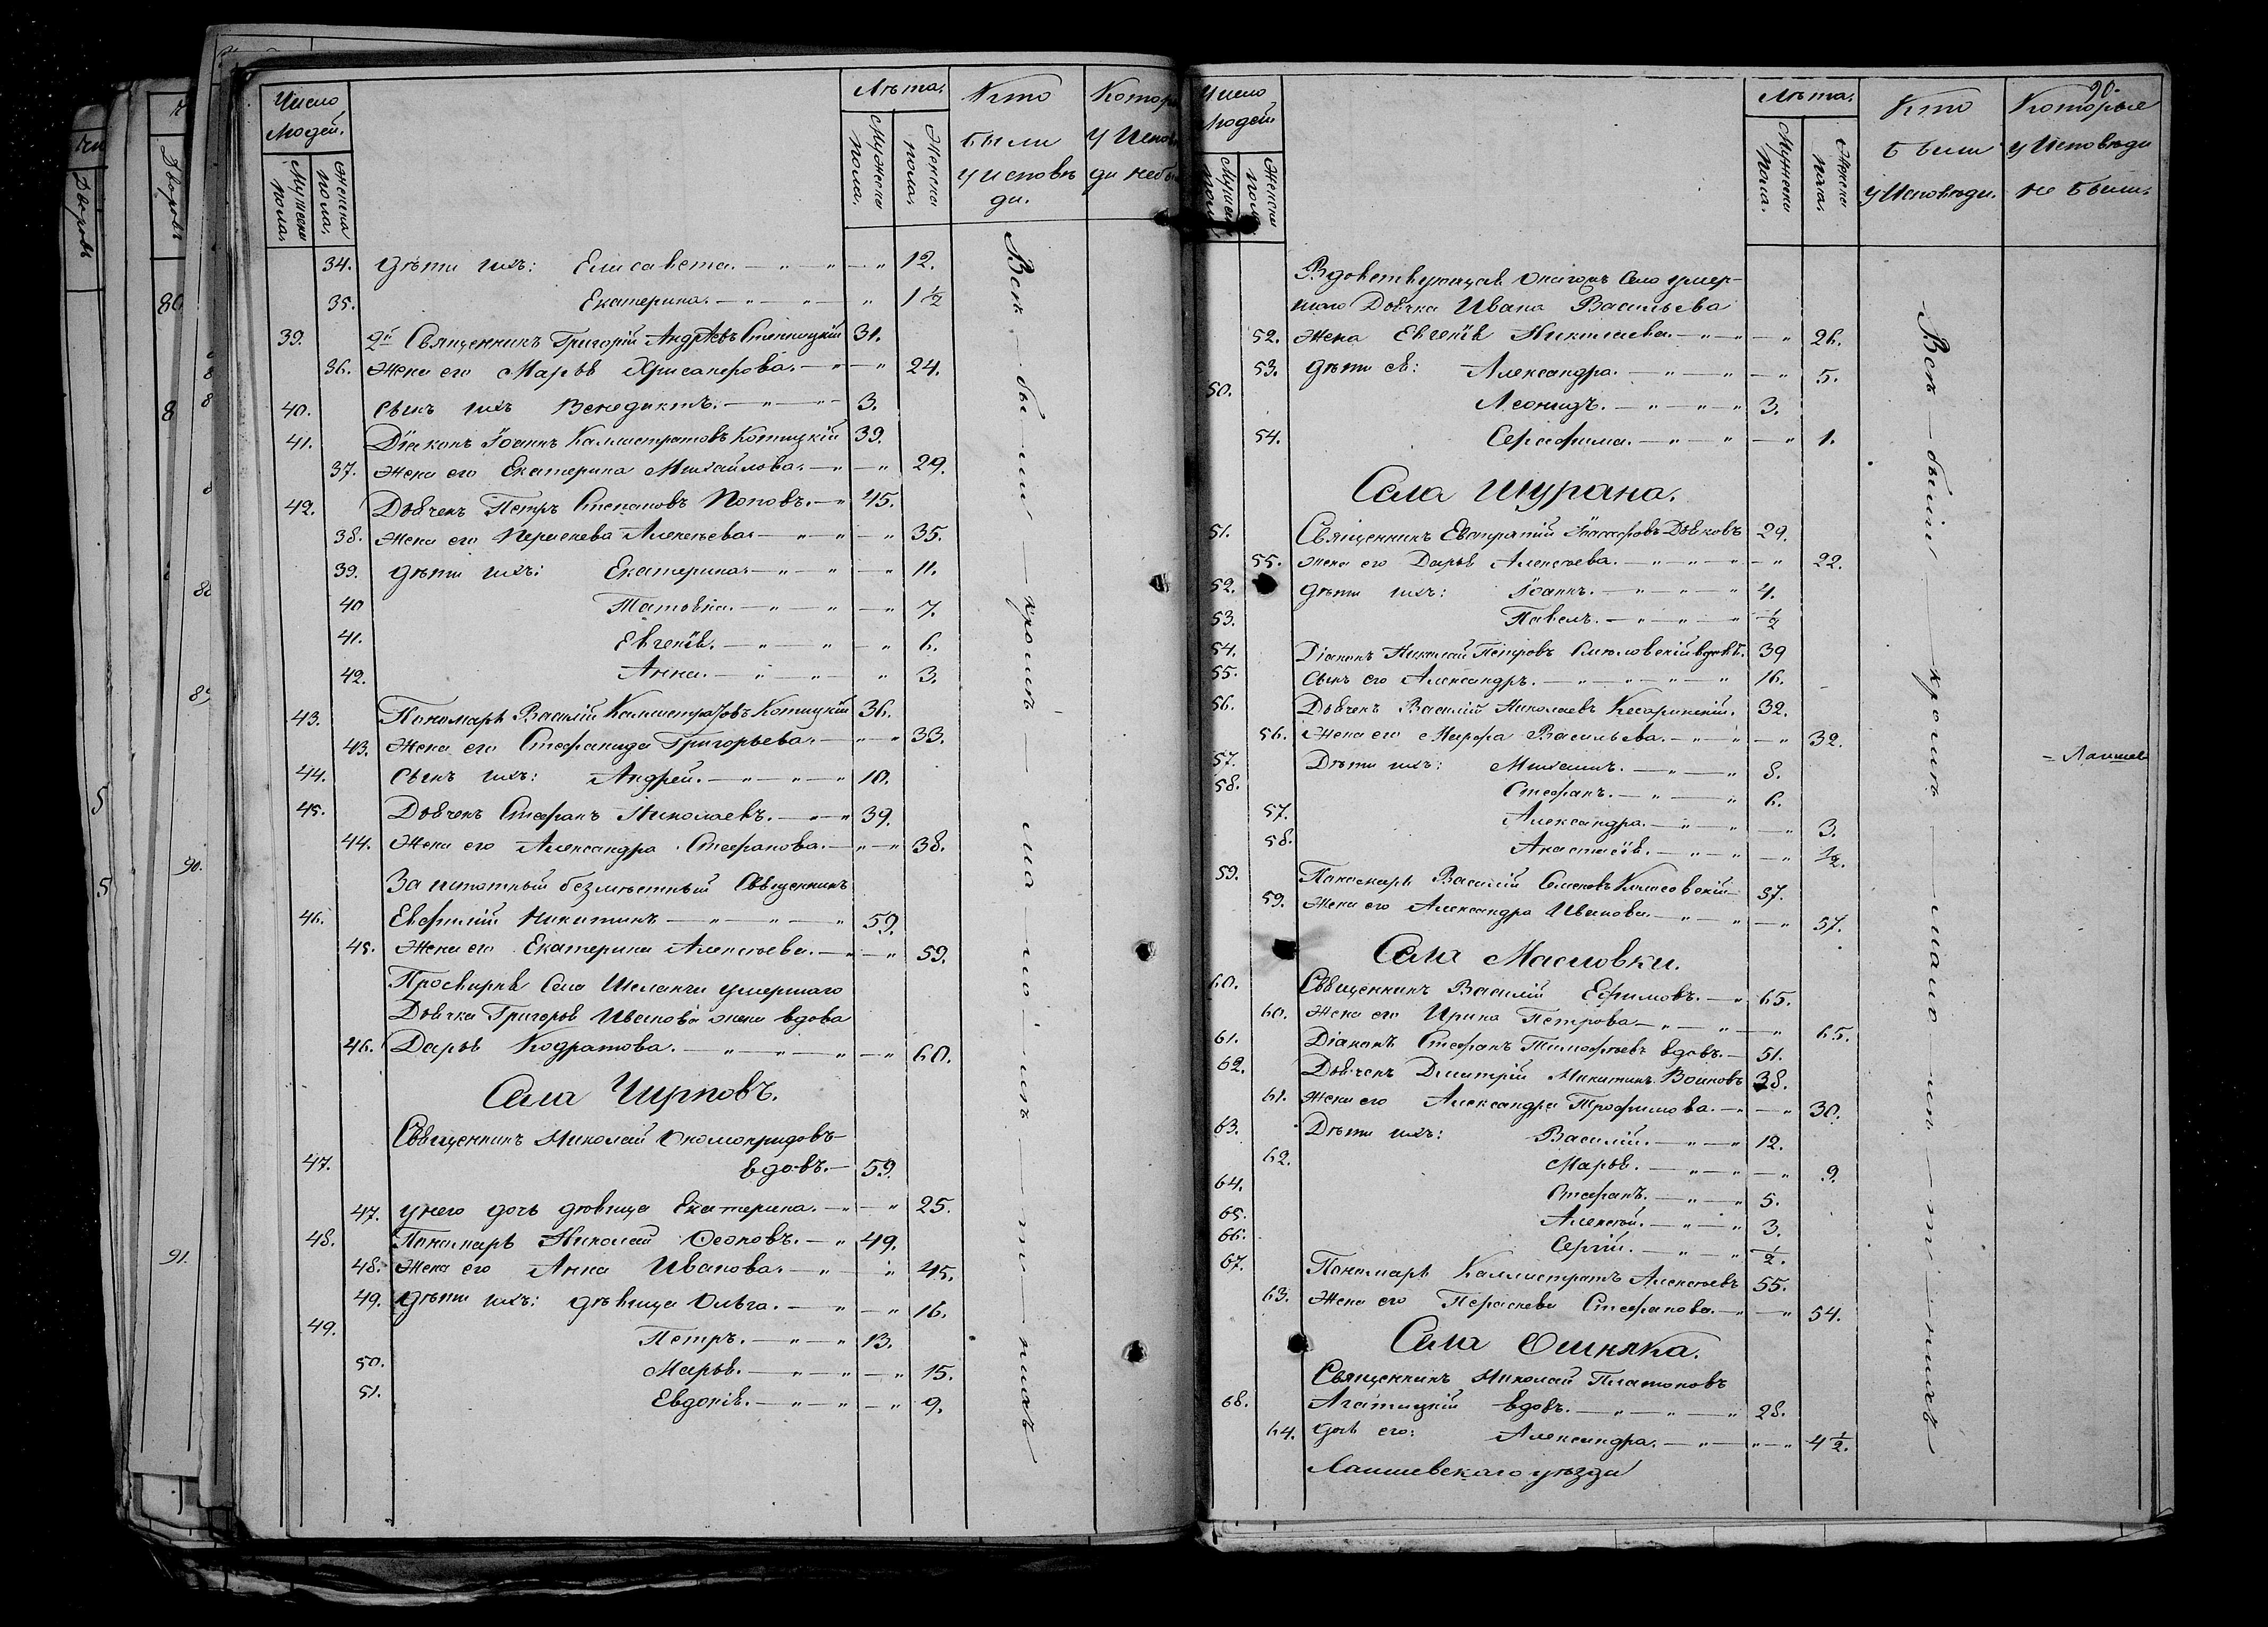 Число Людей.
Мужеска пола.
Женска пола.
Лѣта.
Мужеска пола.
Женска пола.
Кто были у исповѣди.
Котор у Испов ди небы
34. дѣти ихъ: Елисавета. — „ — „ — „ 12.
35. Екатерина. — „ — „ — „ 1 ½
39. 2й Священникъ Григорій Андрѣевъ 31.
36. Жена его Марья — „ — „ 24.
40. Сынъ ихъ Венедиктъ. — „ — „ 3.
41. Діаконъ Іоаннъ Каллистратовъ Котицкій 39.
37. Жена его Екатерина Михайлова. — „ — „ 29.
42. Дьячекъ Петръ Степановъ Поповъ. — „ 45.
38. Жена его Параскева Алексѣева. — „ — „ 35.
39. дѣти ихъ: Екатерина. — „ — „ — „ 11.
40 — „ — „ — „ 7.
41. Евгенія. — „ — „ — „ 6.
42. Анна. — „ — „ „ 3.
43. Пономарь Василій Каллистратовъ Котицкій 36.
43. Жена его Стефанида Григорьева. — „ — „ 33.
44. Сынъ ихъ: Андрей. — „ — „ — „ 10.
45. Дьячекъ Стефанъ Николаевъ. — „ — „ 39.
44. Жена его Александра Стефанова. — „ — „ 38.
Заштатный безмѣстный Священникъ
46. Евфимій Никитинъ — „ — „ — „ 59.
45. Жена его Екатерина Алексѣева. — „ — „ 59.
Просвирня Села Шеланги умершаго
Дьячка Григорья Иванова жена вдова
46. Дарья Кодратова. — „ — „ — „ — „ 60.
Села Чирповъ.
Священникъ Николай
47. вдовъ. — 59.
47. у него дочь дѣвица Екатерина. — „ — „ 25.
48. Пономарь Николай — „ 49.
48. Жена его Анна Иванова. — „ „ 45.
49. дѣти ихъ: дѣвица Ольга. — „ — „ 16.
49. Петръ. — „ — „ 13.
50. Марья. — „ — „ — „ 15.
51. Евдокія. — „ — „ — „ 9.
Всѣ — бы — ли — кромѣ — ма — ло — лѣ — т — нихъ
90.
Число Людей
Мужеск пола
Женска пола
Лѣта.
Мужеска пола.
Женска пола.
Кто были у Исповѣди.
Которые у Исповѣди не были.
Вдовствующая онагожъ Села умер-
шаго Дьячка Ивана Васильева
52. Жена Евгенія Николаева. — „ — „ — „ 26.
53. дѣти ея: Александра. — „ — „ — „ 5.
50. Леонидъ. — „ — „ — „ 3.
54. Серафима. — „ — „ — „ 1.
Села Шурана.
51. Священникъ Евстратій Дьяковъ 29.
55. Жена его Дарья Алексѣева. — „ — „ — „ — „ 22.
52. дѣти ихъ: Іоаннъ. — „ — „ — „ 4.
53. Павелъ. — „ — „ — „ ½
54. Діаконъ Николай Петровъ вдовъ. 39
55. Сынъ его Александръ. — „ — „ — „ — „ 16.
56. Дьячекъ Василій Николаевъ Кесаринскій. 32.
56. Жена его Марфа Васильева. — „ — „ — „ 32.
57. Дѣти ихъ: Михаилъ. — „ — „ 8.
58. Стефанъ. — „ — „ 6.
57. Александра. — „ — „ — „ 3.
58. Анастасія. — „ — „ — „ ½.
59. Пономарь Василій Семеновъ 57.
59. Жена его Александра Иванова. — „ — „ — „ 57.
Села Масловки.
60. Священникъ Василій Ефимовъ. — „ 65.
60. Жена его Ирина Петрова. — „ — „ — „ 65.
61. Діаконъ Стефанъ Тимофѣевъ вдовъ. — 51.
62. Дьячекъ Дмитрій Никитинъ Воиновъ 38.
61. Жена его Александра Трофимова. — „ — „ 30.
63. Дѣти ихъ: Василій. — „ — „ 12.
62. Марья. — „ — „ — „ 9.
64. Стефанъ. — „ — „ 5.
65. Алексѣй. — „ — „ 3.
66. Сергій. — „ — „ ½.
67. Пономарь Каллистратъ Алексѣевъ 55.
63. Жена его Параскева Стефанова. — „ — „ 54.
Села Ошняка.
Священникъ Николай Платоновъ
68. Агатицкій вдовъ. — „ — „ — „ 28.
64. дочь его: Александра. — „ — „ — „ 4 ½.
Лаишевскаго уѣзда
Всѣ — были — кромѣ — мало — лѣ — т — нихъ
= Лаишев